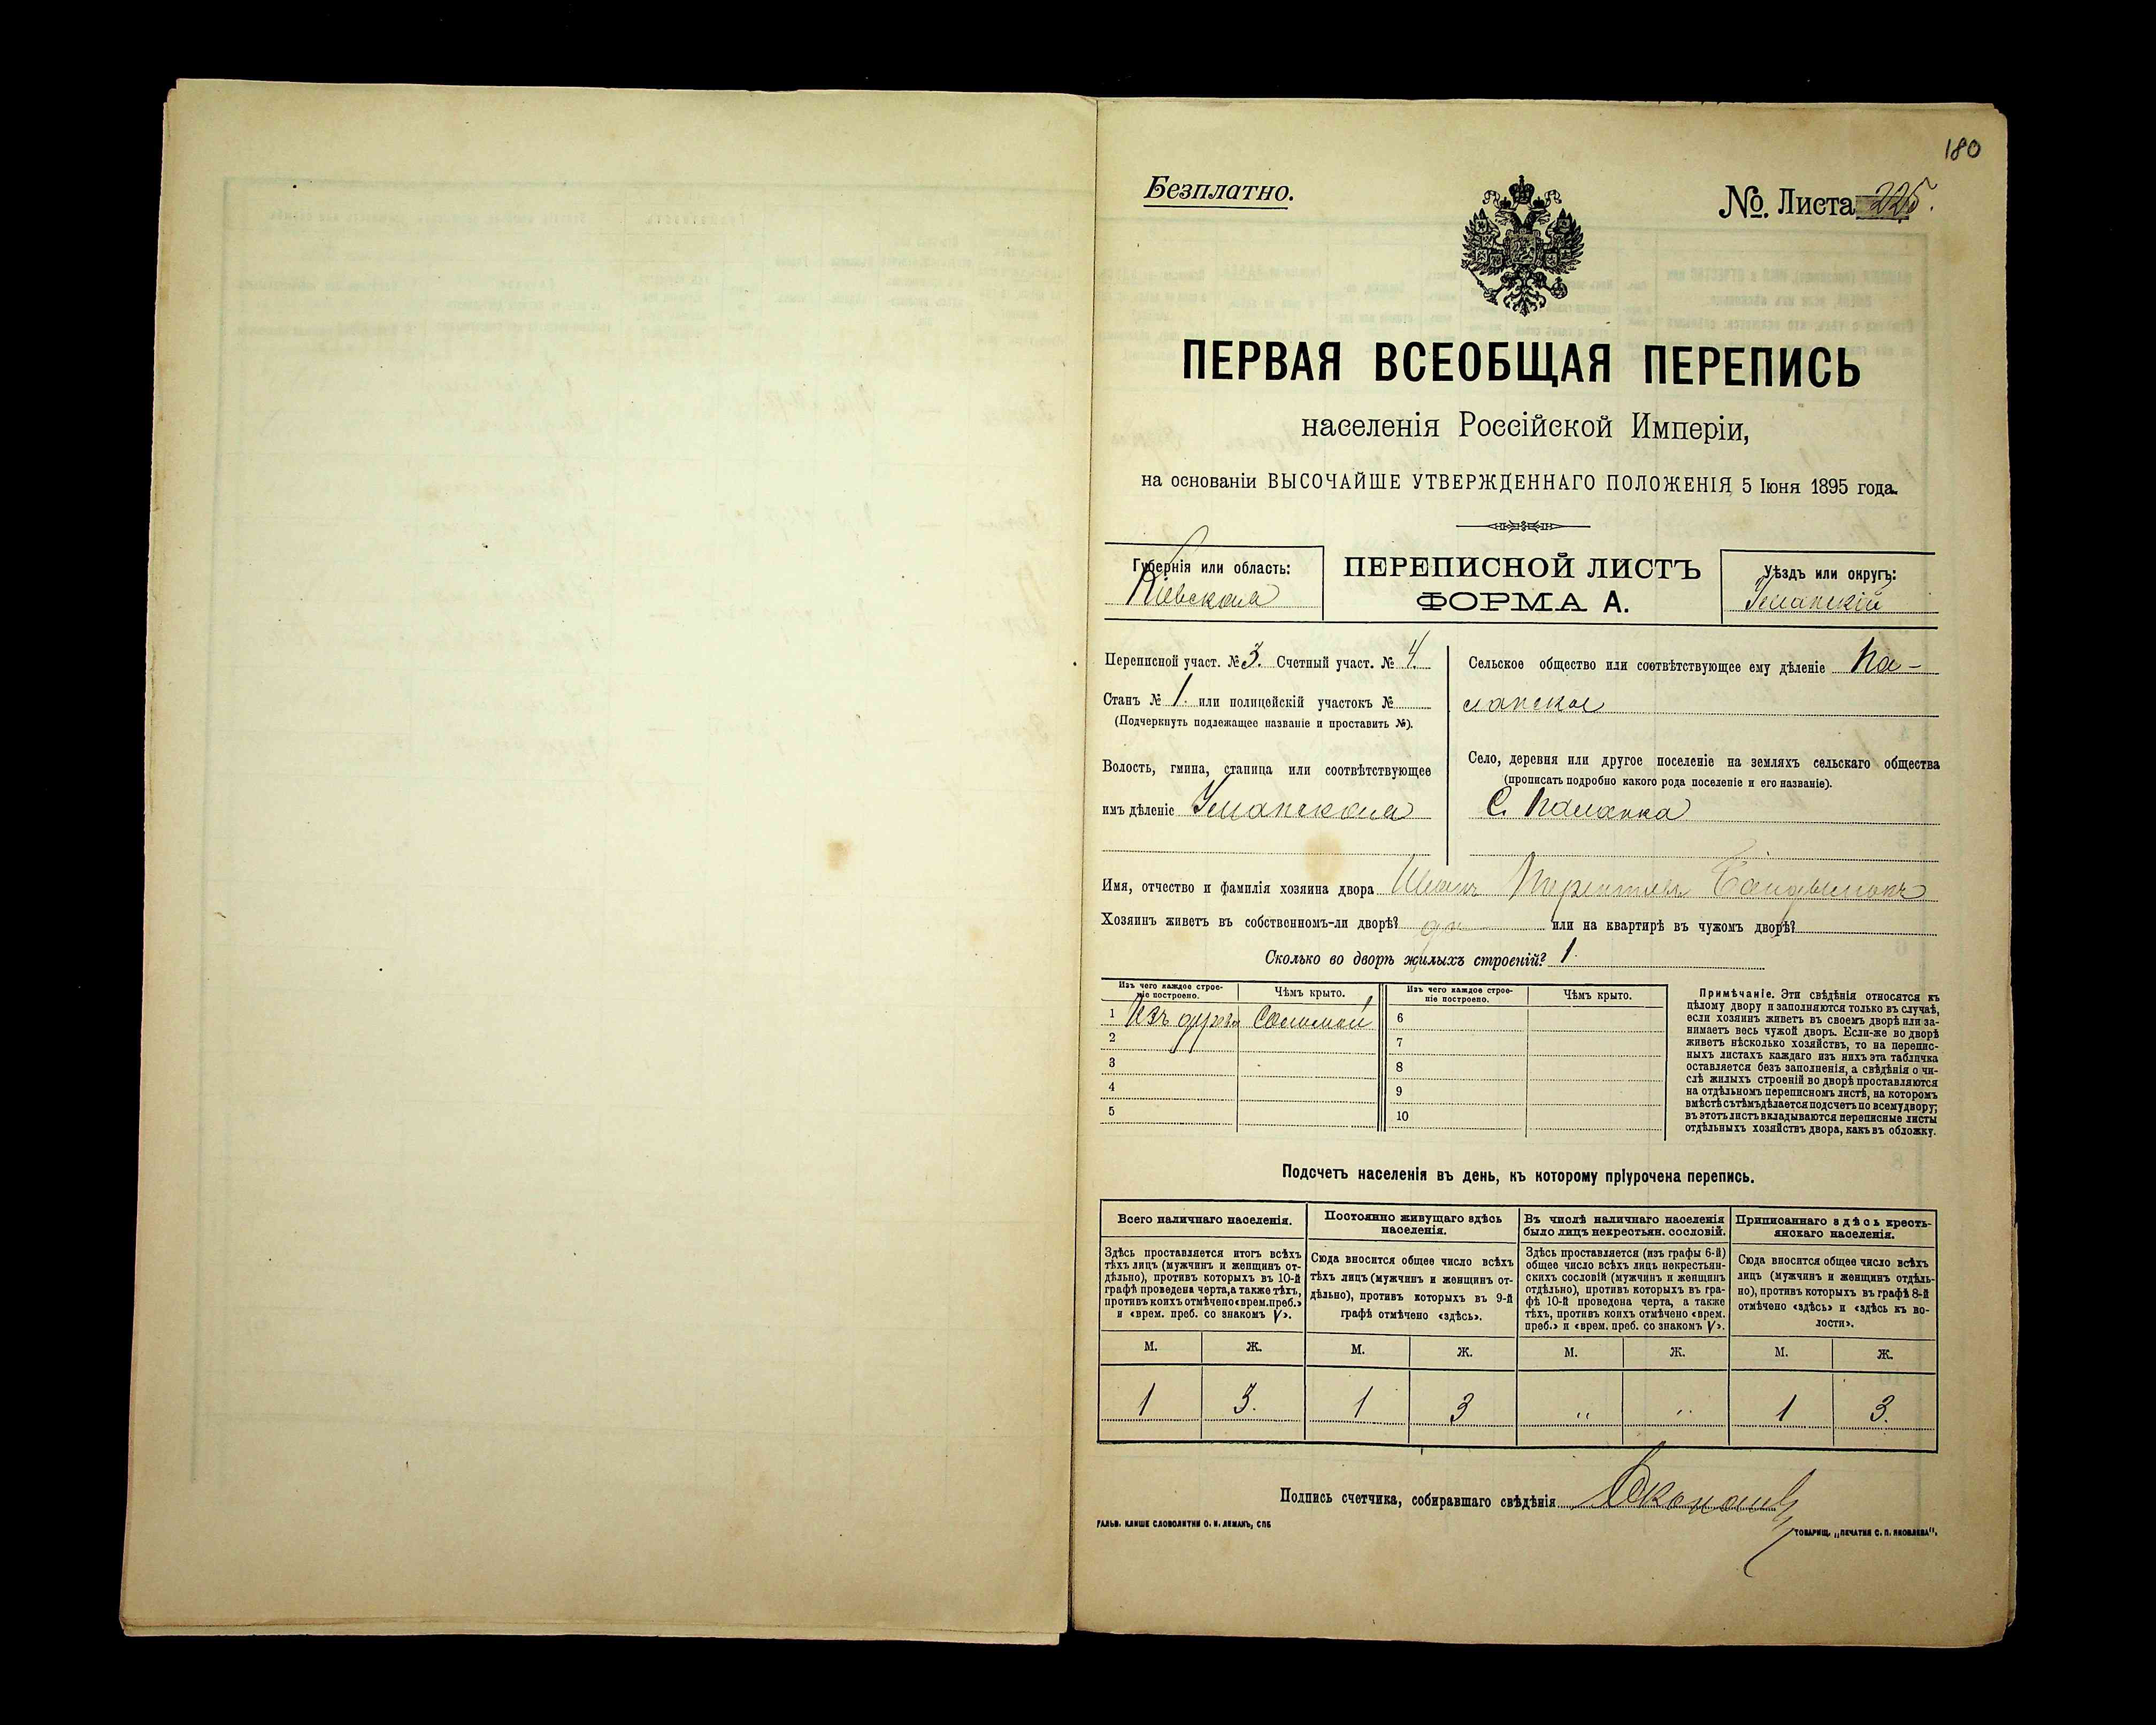 180
Безплатно.
№. Листа 225.
ПЕРВАЯ ВСЕОБЩАЯ ПЕРЕПИСЬ
населенія Россійской Имперіи,
на основаніи ВЫСОЧАЙШЕ УТВЕРЖДЕННАГО ПОЛОЖЕНІЯ 5 Іюня 1895 года.
Губернія или область:
Кіевская
ПЕРЕПИСНОЙ ЛИСТЪ
ФОРМА А.
Уѣздъ или округъ:
Уманскій
Переписной участ. № 3. Счетный участ. № 4.
Станъ № 1. или полицейскій участокъ №
(Подчеркнуть подлежащее названіе и проставить №).
Волость, гмина, станица или соотвѣтствующее
имъ дѣленіе Уманская
Сельское общество или соотвѣтствующее ему дѣленіе Па-
ланское
Село, деревня или другое поселеніе на земляхъ сельскаго общества
(прописать подробно какого рода поселеніе и его названіе).
С. Паланка
Имя, отчество и фамилія хозяина двора Иванъ
Хозяинъ живетъ въ собственномъ-ли дворѣ? да или на квартирѣ въ чужомъ дворѣ?
Сколько во дворѣ жилыхъ строеній? 1.
Изъ чего каждое строе-
ніе построено.
Чѣмъ крыто.
1 Изъ дерева Соломой
2
3
4
5
Изъ чего каждое строе-
ніе построено.
Чѣмъ крыто.
6
7
8
9
10
Примѣчаніе. Эти свѣдѣнія относятся къ
цѣлому двору и заполняются только въ случаѣ,
если хозяинъ живетъ въ своемъ дворѣ или за-
нимаетъ весь чужой дворъ. Если-же во дворѣ
живетъ нѣсколько хозяйствъ, то на перепис-
ныхъ листахъ каждаго изъ нихъ эта табличка
оставляется безъ заполненія, а свѣдѣнія о чи-
слѣ жилыхъ строеній во дворѣ проставляются
на отдѣльномъ переписномъ листѣ, на которомъ
вмѣстѣ съ тѣмъ дѣлается подсчетъ по всему двору;
въ этотъ листъ вкладываются переписные листы
отдѣльныхъ хозяйствъ двора, какъ въ обложку.
Подсчетъ населенія въ день, къ которому пріурочена перепись.
Всего наличнаго населенія.
Здѣсь проставляется итогъ всѣхъ
тѣхъ лицъ (мужчинъ и женщинъ от-
дѣльно), противъ которыхъ въ 10-й
графѣ проведена черта, а также тѣхъ,
противъ коихъ отмѣчено «врем. преб.»
и «врем. преб. со знакомъ V».
М. Ж.
1 3.
Постоянно живущаго здѣсь
населенія.
Сюда вносится общее число всѣхъ
тѣхъ лицъ (мужчинъ и женщинъ от-
дѣльно), противъ которыхъ въ 9-й
графѣ отмѣчено «здѣсь».
М. Ж.
1 3
Въ числѣ наличнаго населенія
было лицъ некрестьян. сословій.
Здѣсь проставляется (изъ графы 6-й)
общее число всѣхъ лицъ некрестьян-
скихъ сословій (мужчинъ и женщинъ
отдѣльно), противъ которыхъ въ гра-
фѣ 10-й проведена черта, а также
тѣхъ, противъ коихъ отмѣчено «врем.
преб.» и «врем. преб. со знакомъ V».
М. Ж.
" "
Приписаннаго здѣсь кресть-
янскаго населенія.
Сюда вносится общее число всѣхъ
лицъ (мужчинъ и женщинъ отдѣль-
но), противъ которыхъ въ графѣ 8-й
отмѣчено «здѣсь» и «здѣсь къ во-
лости».
М. Ж.
1 3.
Подпись счетчика, собиравшаго свѣдѣнія
ГАЛЬВ. КЛИШЕ СЛОВОЛИТНИ О. И. ЛЕМАНЪ, СПБ
ТОВАРИЩ. „ПЕЧАТНЯ С. П. ЯКОВЛЕВА".